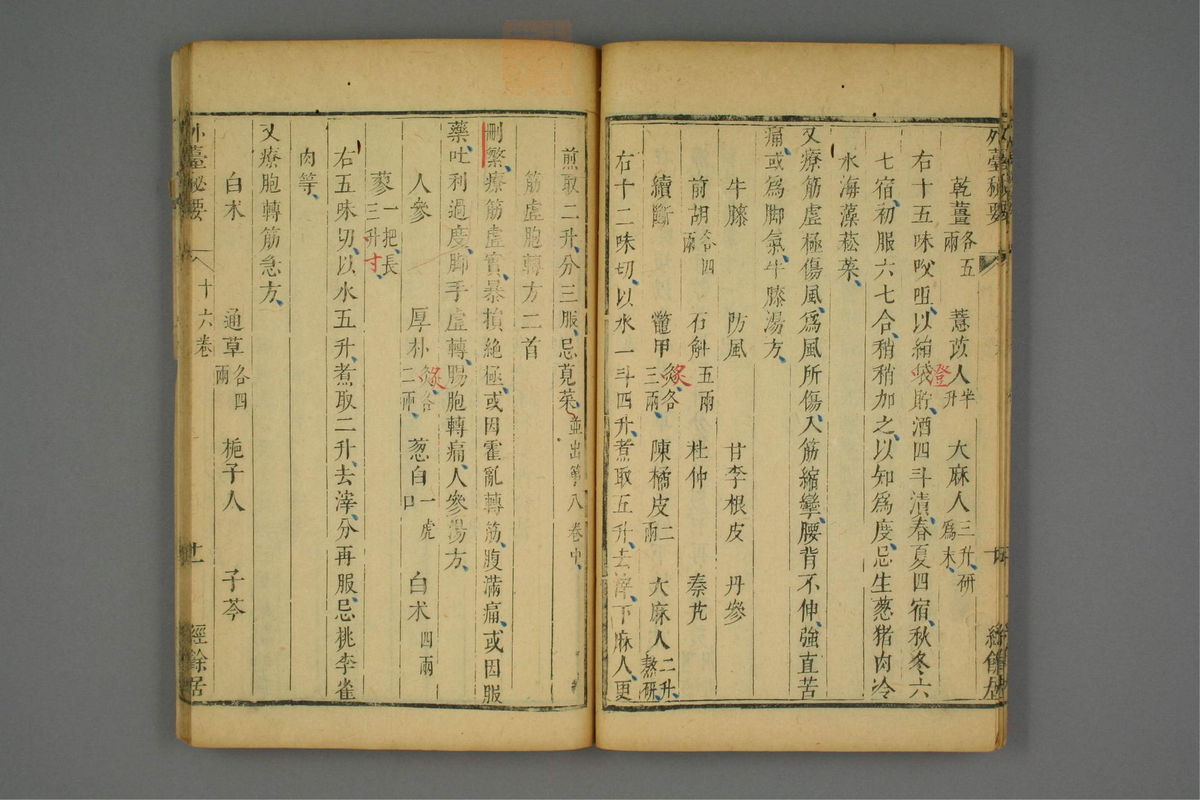 外臺秘要
乾薑各五兩 薏苡人半升 大麻人三升研爲末
右十五味㕮咀以絹袋貯酒四斗漬春夏四宿秋冬六
七宿初服六七合稍稍加之以知爲度忌生葱猪肉冷
水海藻菘菜
又療筋虛極傷風爲風所傷入筋縮攣腰背不伸強直苦
痛或爲脚氣牛膝湯方
牛膝 防風 甘李根皮 丹參
前胡各四兩 石斛五兩 杜仲 秦艽
續斷 鼈甲炙各三兩 陳橘皮二兩 大麻人二升熬研
右十二味切以水一斗四升煮取五升去滓下麻人更
煎取二升分三服忌莧菜並出第八卷中
筋虛胞轉方二首
刪繁療筋虛實暴損絶極或因霍亂轉筋腹滿痛或因服
藥吐利過度脚手虛轉腸胞轉痛人參湯方
人參 厚朴炙各二兩 葱白一虎口 白朮四兩
蓼一把長三升寸
右五味切以水五升煮取二升去滓分再服忌桃李雀
肉等
又療胞轉筋急方
白朮 通草各四兩 梔子人 子芩
外臺秘要 十六卷 十一 經餘居